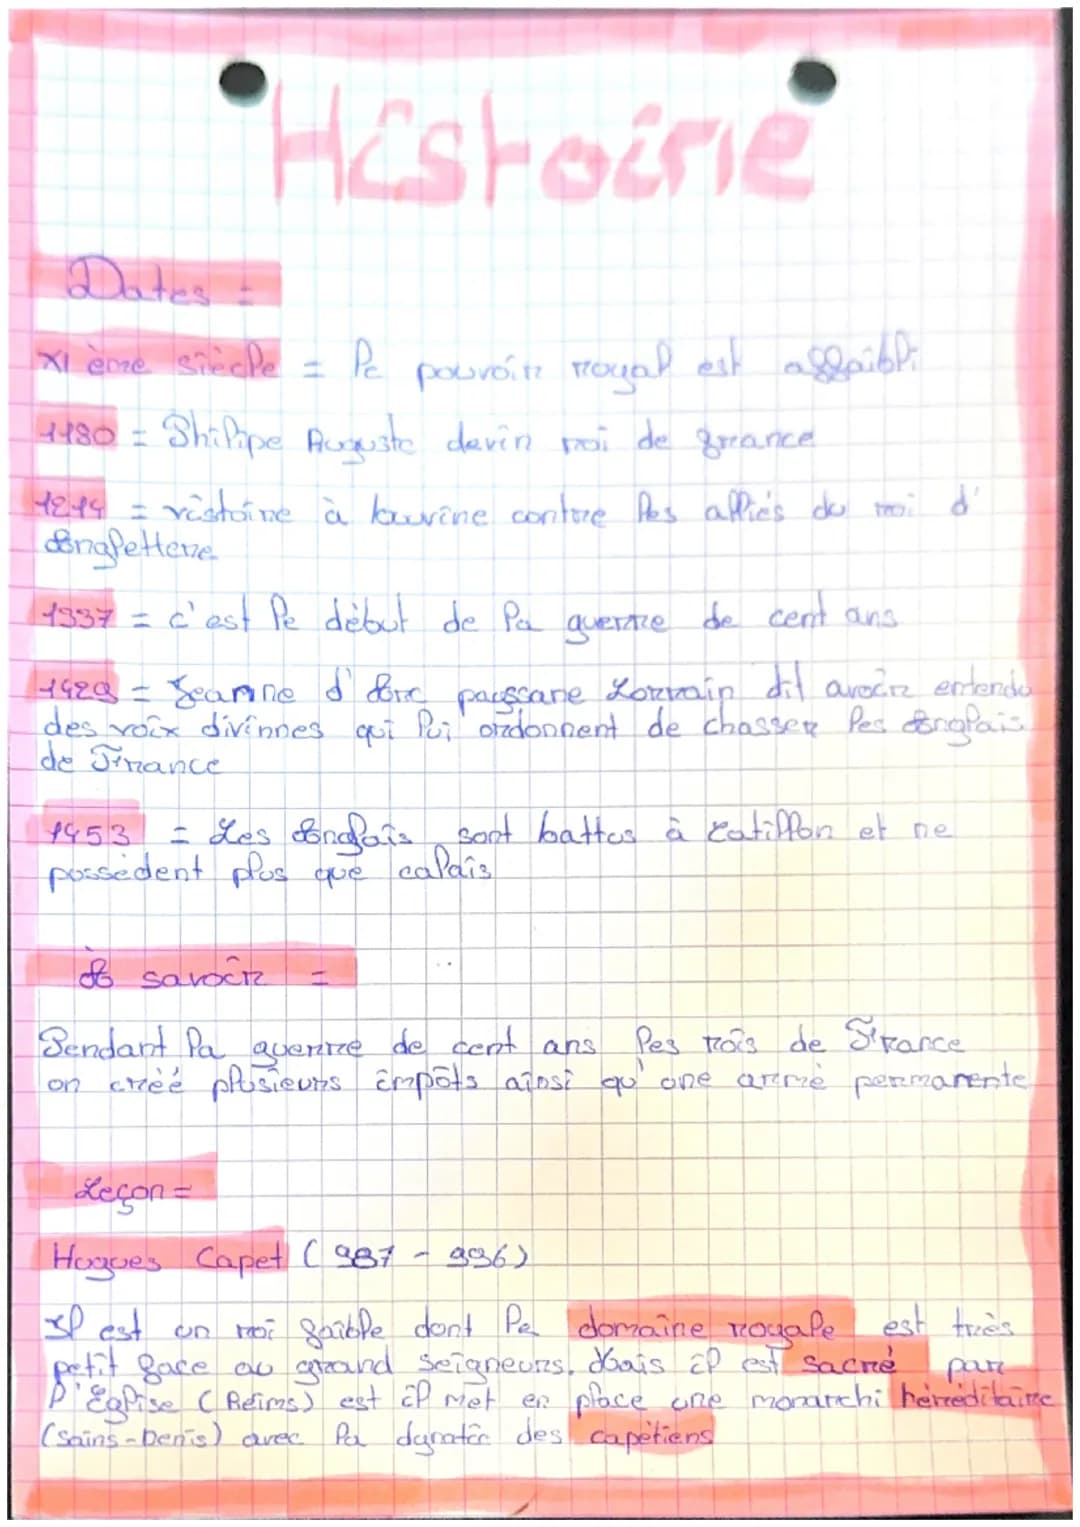 Histoire
Dates =
XI ème siècle = le pouvoir royal est affaibli
1180 = Philipe Auguste devin roi de france
1214 = victoire à bouvine contre les alliés du roi d'
Angletterre
1337 = c'est le début de la guerre de cent ans
1429 = Jeanne d'Arc paysane Lorrain dit avoir entendu
des voix divinnes qui lui ordonnent de chasser les Anglais
de France
1453 = Les Anglais sont battus à Catillon et ne
possèdent plus que calais
À savoir =
Pendant la guerre de cent ans les rois de France
on créé plusieurs impôts ainsi qu'une armé permanente
Leçon =
Hugues Capet (987 - 996)
Il est un roi faible dont le domaine royale est très
petit face au grand seigneurs. Mais il est sacré par
l'Église (Reims) est il met en place une monarchi héréditaire
(Sains-Denis) avec la dynatie des capétiens